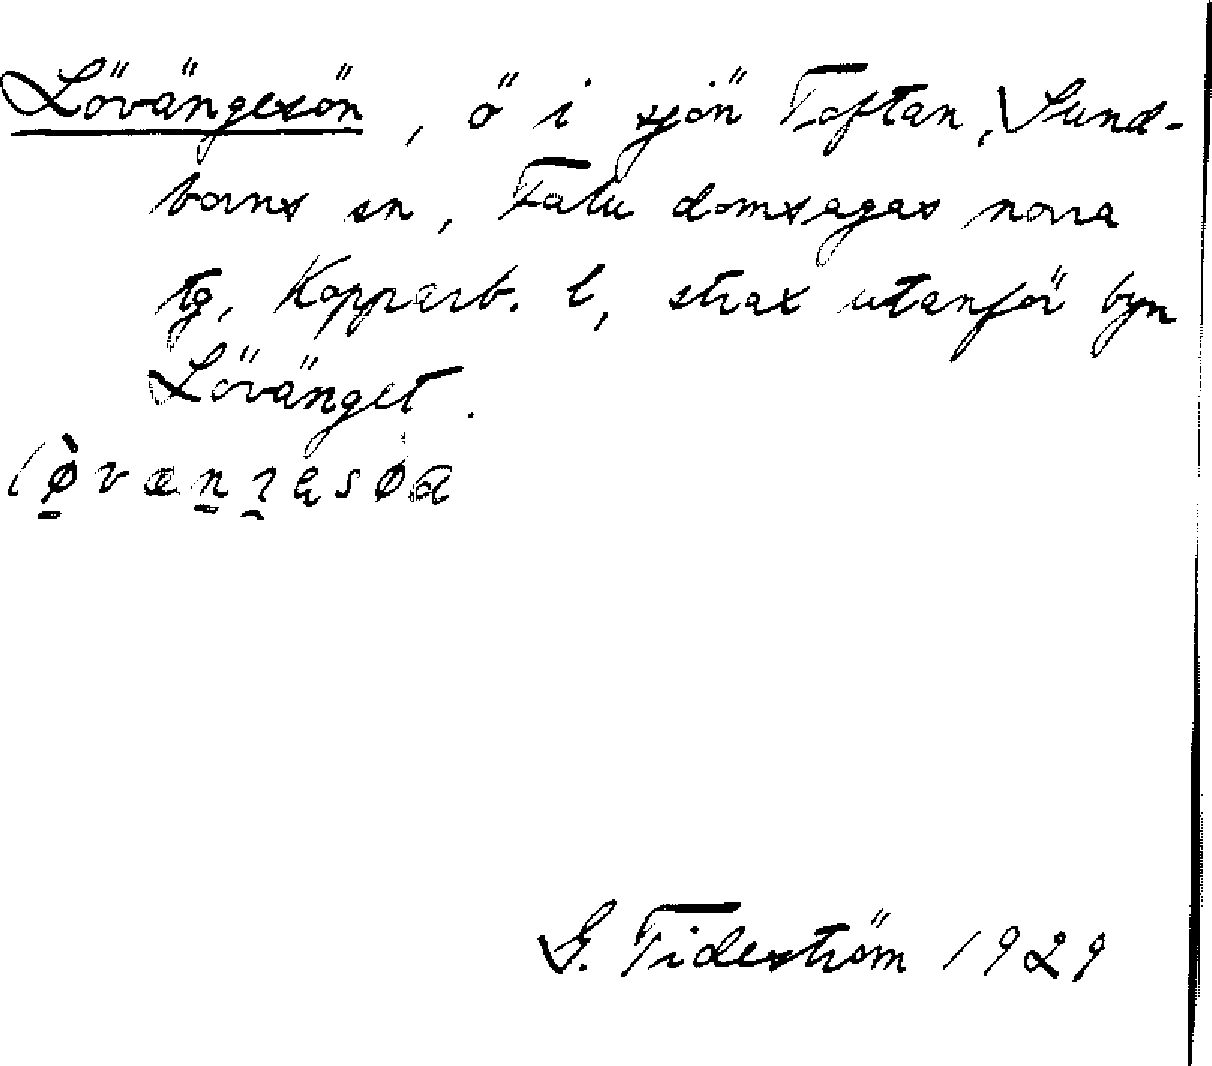 Lövängesön, ö i sjön Toftan, Sund-
borns sn, Falu domsagas norra
tg, Kopparb. l, strax utanför byn
Lövänget.
G. Tideström 1929